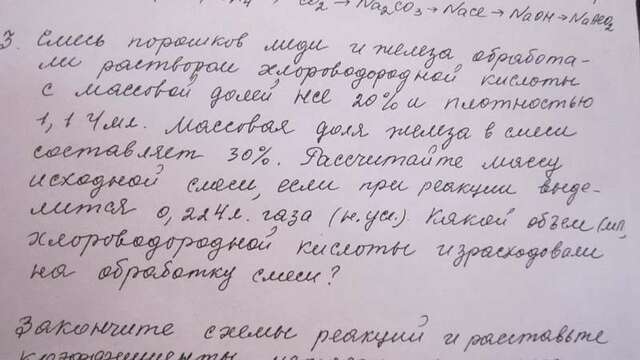 Cl₂ → Na₂CO₃ → NaCl → NaOH → NaHCO₃
3. Смесь порошков меди и железа обработа-
ли раствором хлороводородной кислоты
с массовой долей HCl 20% и плотностью
1,1 г/мл. Массовая доля железа в смеси
составляет 30%. Рассчитайте массу
исходной смеси, если при реакции выде-
лится 0,224 л. газа (н.ус.). Какой объем (мл)
хлороводородной кислоты израсходовали
на обработку смеси?
Закончите схемы реакций и расставьте
коэффициенты